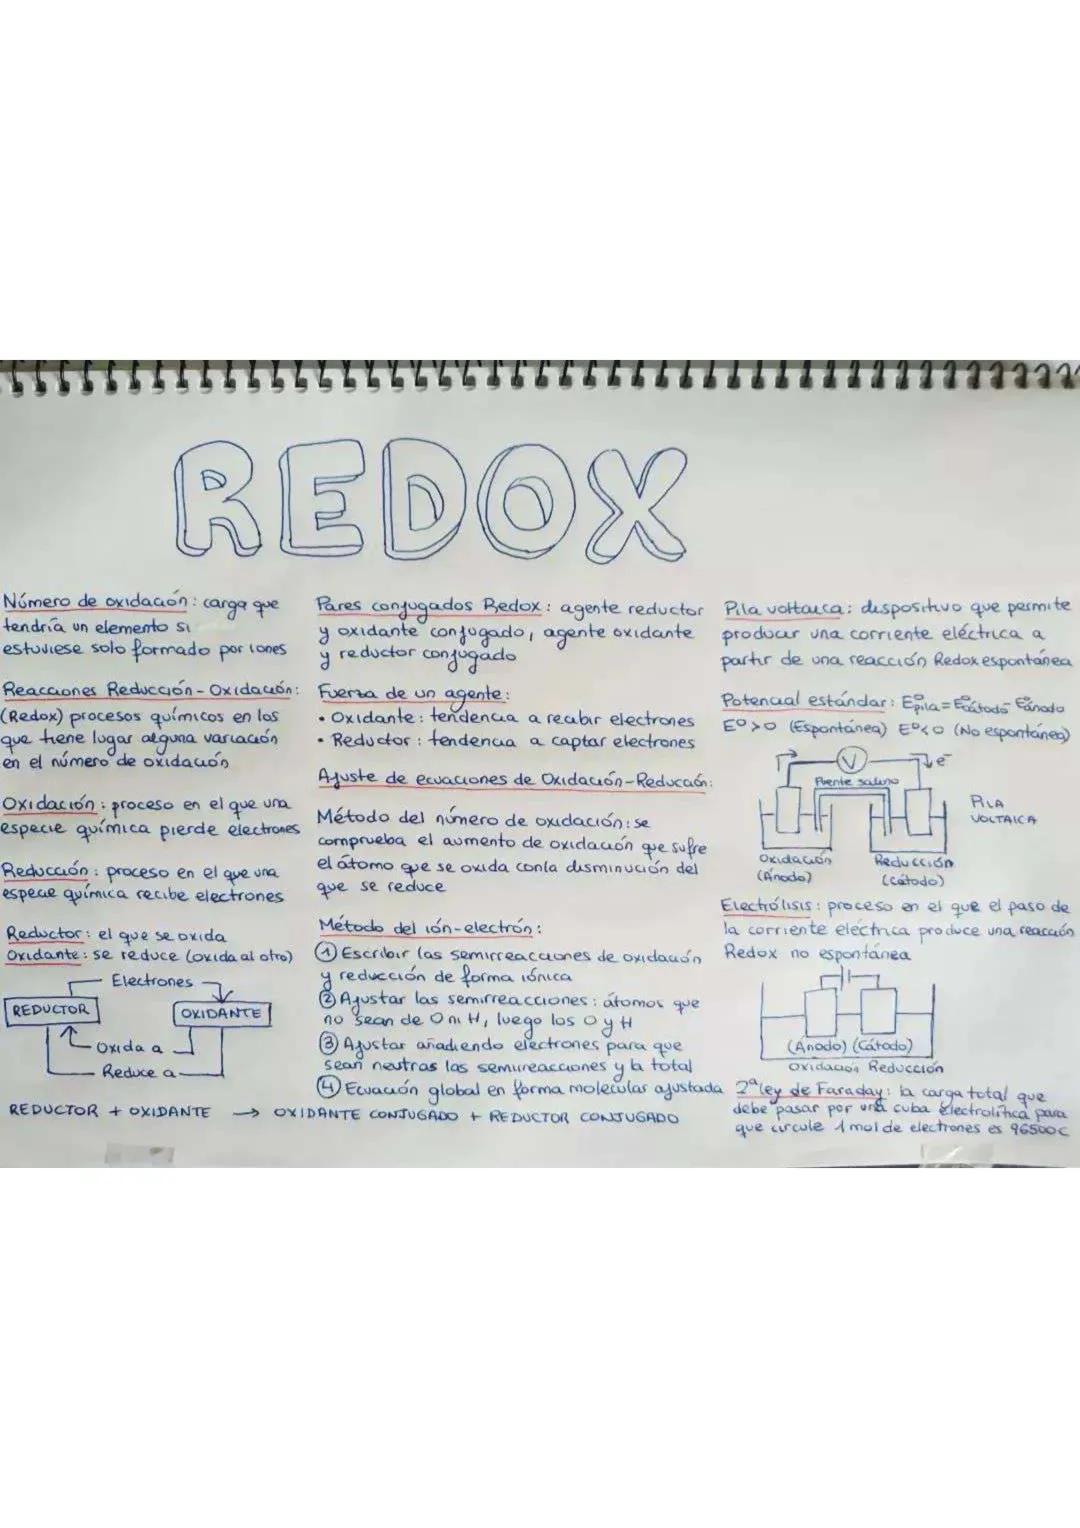 REDOX
Número de oxidación: carga que
tendría un elemento si
estuviese solo formado por iones
Reacciones Reducción-Oxidación:
(Redox) procesos químicos en los
que tiene lugar alguna variación
en el número de oxidación
Oxidación: proceso en el que una
especie química pierde electrones
Reducción: proceso en el que una
especie química recibe electrones
Reductor: el que se oxida
Oxidante: se reduce (oxida al otro)
Electrones
REDUCTOR
OXIDANTE
Oxida a
Reduce a
REDUCTOR + OXIDANTE → OXIDANTE CONJUGADO + REDUCTOR CONJUGADO
Pares conjugados Redox: agente reductor
y oxidante conjugado, agente oxidante
y reductor conjugado
Fuerza de un agente:
• Oxidante: tendencia a recibir electrones
• Reductor: tendencia a captar electrones
Ajuste de ecuaciones de Oxidación-Reducción:
Método del número de oxidación: se
comprueba el aumento de oxidación que sufre
el átomo que se oxida con la disminución del
que se reduce
Método del ión-electrón:
① Escribir las semirreacciones de oxidación
y reducción de forma iónica
② Ajustar las semirreacciones: átomos que
no sean de O ni H, luego los O y H
③ Ajustar añadiendo electrones para que
sean neutras las semireacciones y la total
④ Ecuación global en forma molecular ajustada
Pila voltaica: dispositivo que permite
producir una corriente eléctrica a
partir de una reacción Redox espontánea
Potencial estándar: E°pila = E°cátodo - E°ánodo
E°>0 (Espontánea) E°<0 (No espontánea)
V
e⁻
Puente salino
PILA
VOLTAICA
Oxidación
(Ánodo)
Reducción
(Cátodo)
Electrólisis: proceso en el que el paso de
la corriente eléctrica produce una reacción
Redox no espontánea
(Ánodo) (Cátodo)
Oxidación Reducción
2ª ley de Faraday: la carga total que
debe pasar por una cuba electrolítica para
que circule 1 mol de electrones es 96500C